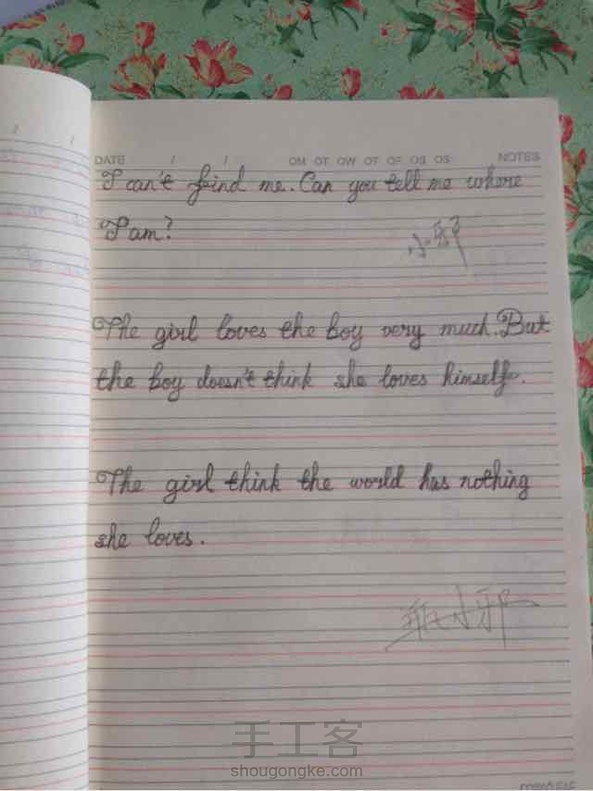 DATE / / OM OT OW OT OF OS OS NOTES
I can't find me. Can you tell me where
I am?
小邪
The girl loves the boy very much. But
the boy doesn't think she loves himself.
The girl think the world has nothing
she loves.
小邪
手工客
shougongke.com